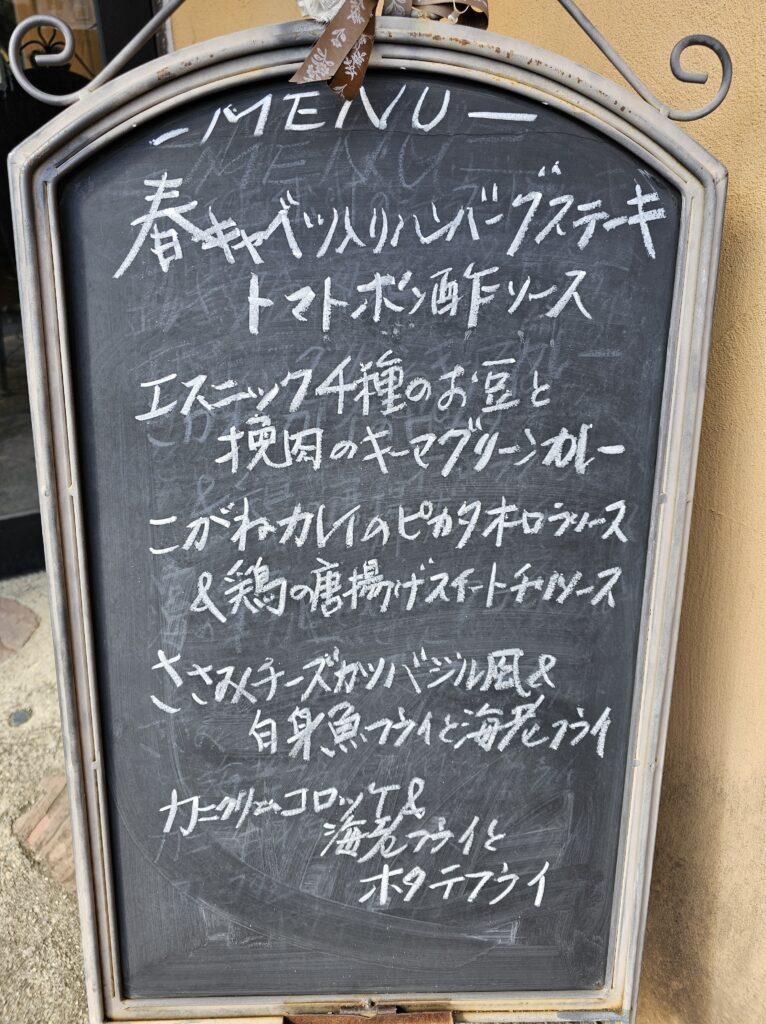 -MENU-
春キャベツ入りハンバーグステーキ
トマトポン酢ソース
エスニック4種のお豆と
挽肉のキーマグリーンカレー
こがねカレイのピカタオーロラソース
&鶏の唐揚げスイートチリソース
ささみチーズカツバジル風&
白身魚フライと海老フライ
カニクリームコロッケ&
海老フライと
ホタテフライ